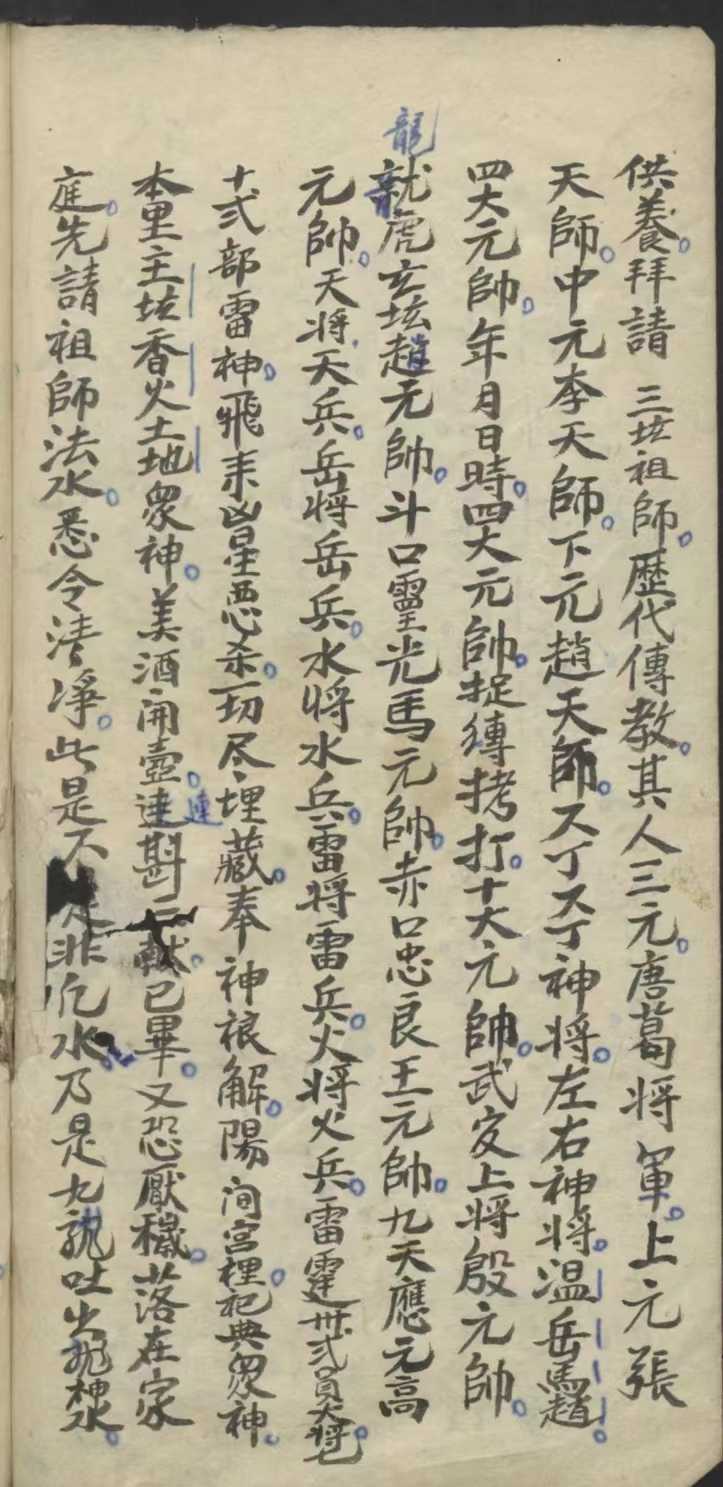 供養。拜請 三坛祖師。歷代傳教。其人三元。唐葛將軍。上元張
天師。中元李天師。下元趙天師。六丁六丁神將。左右神將。温岳馬趙。
四大元帥。年月日時。四大元帥。捉縛拷打。十大元帥。武安上將殷元帥。
龍虎玄坛趙元帥。斗口靈光馬元帥。赤口忠良王元帥。九天應元高
元帥。天将天兵。岳将岳兵。水将水兵。雷将雷兵。火将火兵。雷霆卅弍員大将。
十弍部雷神。飛来凶星恶杀。一切尽埋藏。奉神禳解。陽间宫裡。祀典衆神。
本里主坛香火土地衆神。美酒開壺。連斟三献。已畢。又恐厭穢。落在家
庭。先請祖師法水。悉令清凈。此是不是非凡水。乃是九龍吐出神水。